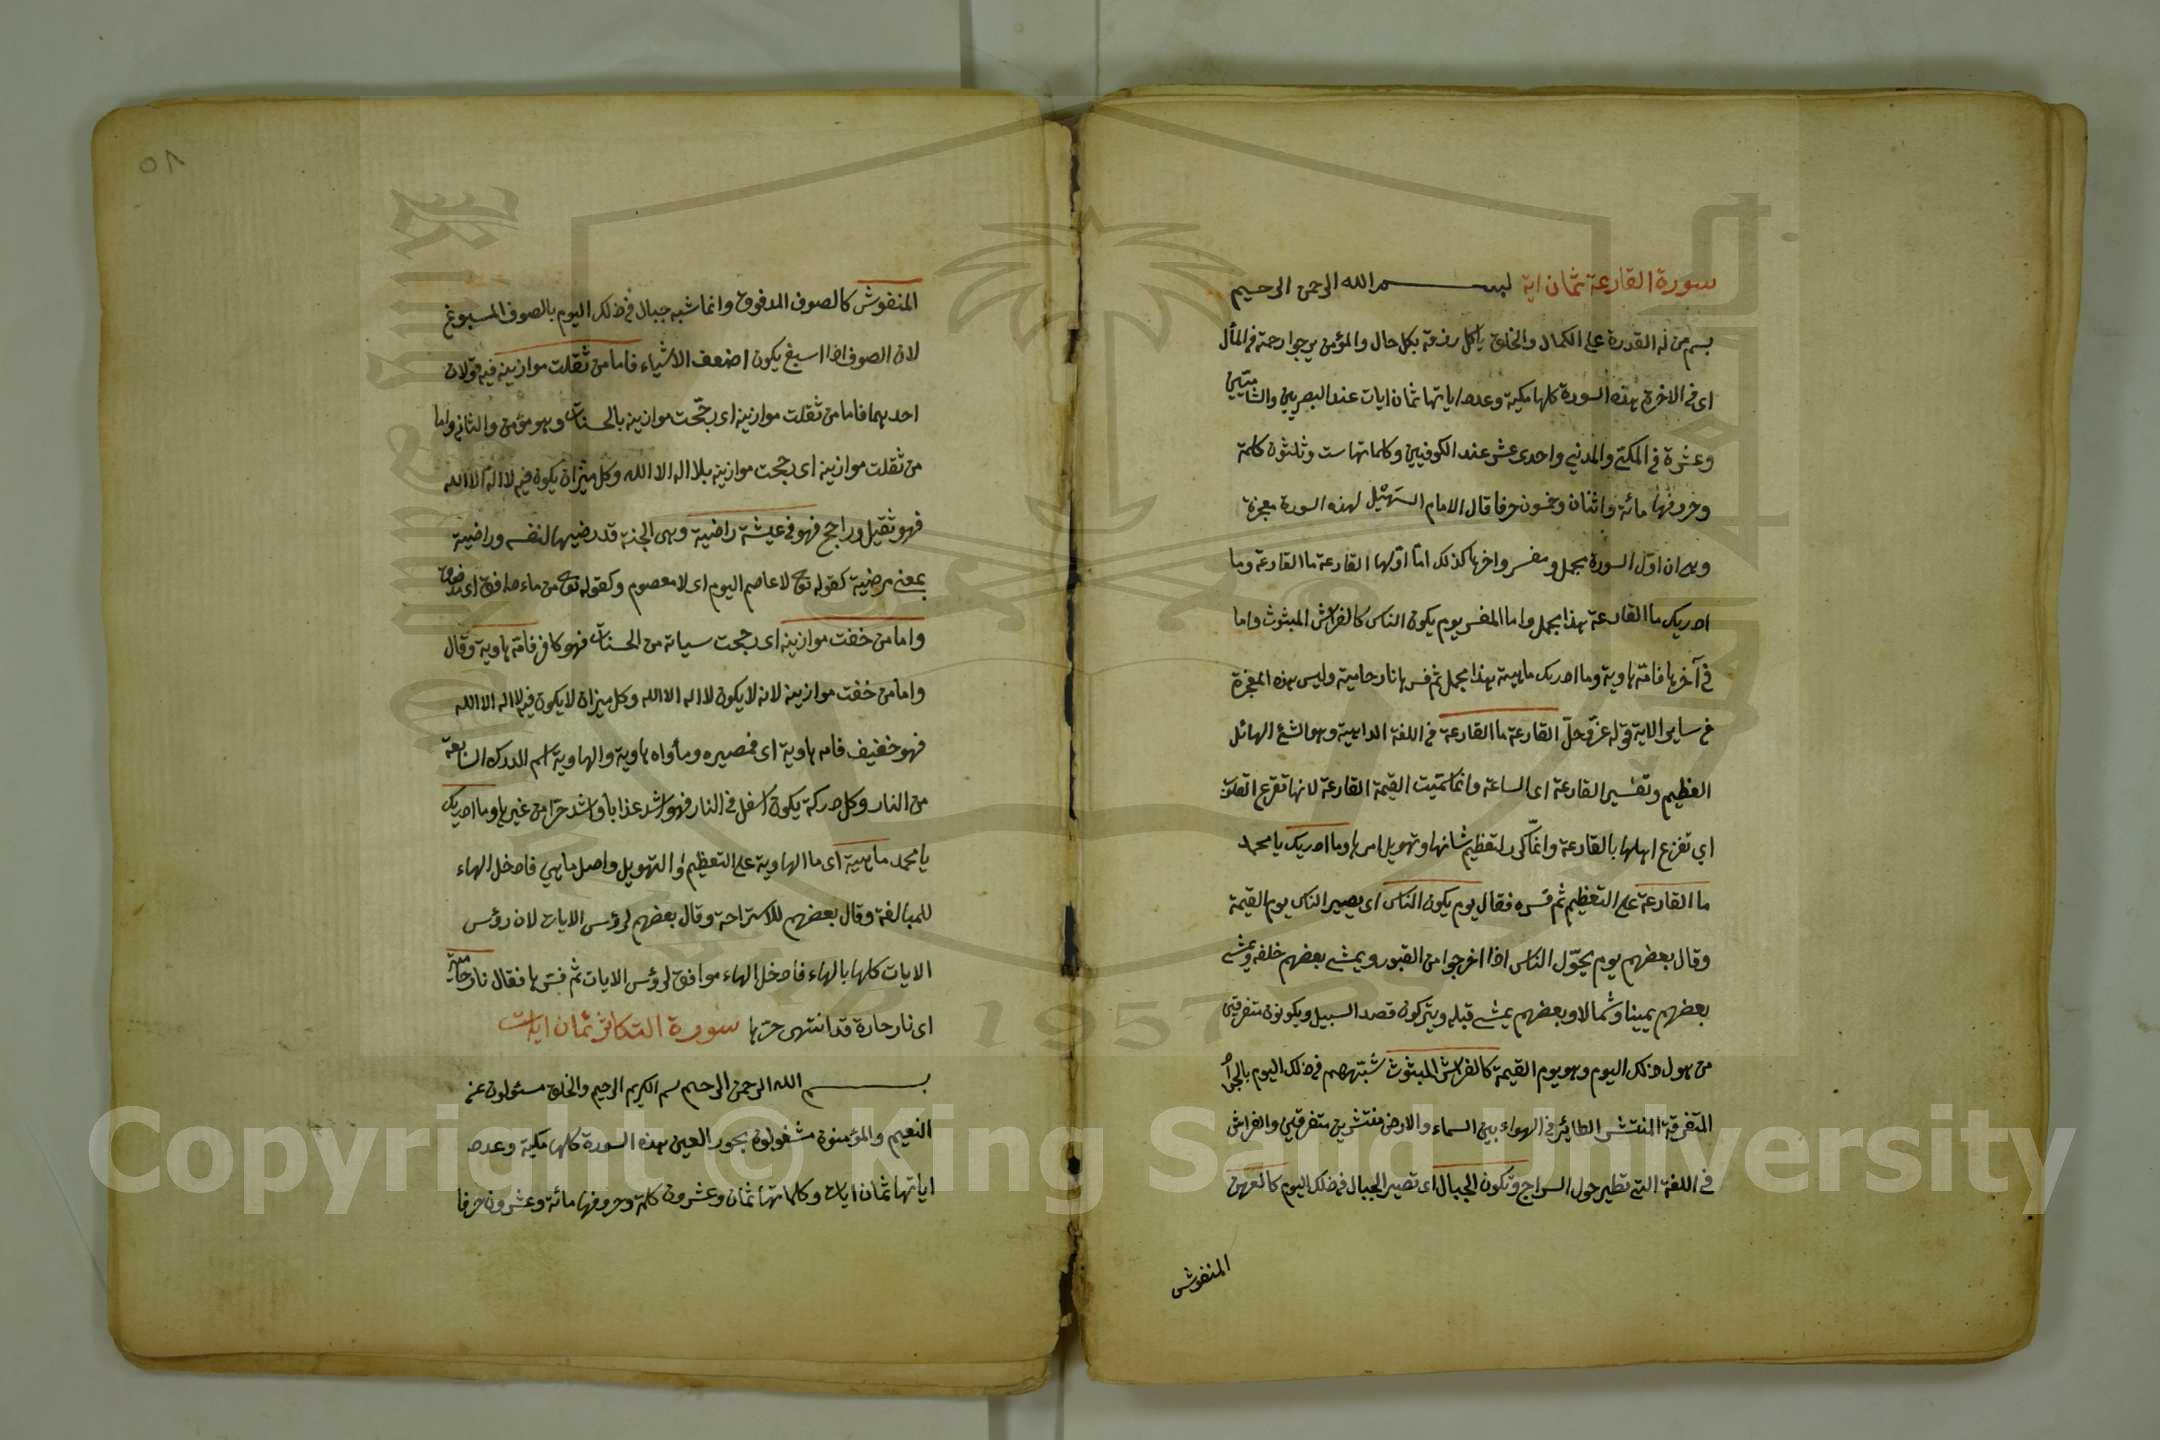 سورة القارعة ثمان اية بسم الله الرحمن الرحيم
بسم من له القدرة على الكمال والخلق يأكل رزقه بكل حال والمؤمن يرجوا رحمته في المآل
اى في الاخرة هذه السورة كلها مكية وعدد اياتها ثمان ايات عند البصريين والشاميين
وعشرة في المكى والمدني واحدى عشر عند الكوفيين وكلماتها ست وثلثون كلمة
وحروفها مائة واثنان وخمسون حرفا قال الامام السهيل لهذه السورة معجزة
وهى ان اول السورة مجمل ومفسر واخرها كذلك اما اولها القارعة ما القارعة وما
ادريك ما القارعة هذا مجمل واما المفسر يوم يكون الناس كالفراش المبثوث واما
في آخرها فامه هاوية وما ادريك ماهية هذا مجمل ثم فسرها نار حامية وليس هذه المعجزة
في ساير الاية قوله عز وجل القارعة ما القارعة في اللغة الداهية وهو الشئ الهائل
العظيم وتفسير القارعة اى الساعة وانما سميت القيمة القارعة لانها تقرع القلوب
اي تفزع اهلها بالقارعة وانما كرر لتعظيم شانها وتهويل امرها وما ادريك يا محمد
ما القارعة على التعظيم ثم فسره فقال يوم يكون الناس اى يصير الناس يوم القيمة
وقال بعضهم يوم يحوّل الناس اذا اخرجوا من القبور ويمشى بعضهم خلفه ويمشى
بعضهم يمينا وشمالا وبعضهم يمشى قبله ويتركون قصد السبيل ويكونون متفرقين
من هول ذلك اليوم وهو يوم القيمة كالفراش المبثوث شبّههم في ذلك اليوم بالجراد
المتفرقة المنتشر الطائر في الهواء بين السماء والارض منتشرين متفرقين والفراش
في اللغة التى تطير حول السراج وتكون الجبال اى تصير الجبال في ذلك اليوم كالعهن
المنفوش
٥٨
المنفوش كالصوف المدفوق وانما شبه جبال في ذلك اليوم بالصوف المسبوغ
لان الصوف اذا اسبغ يكون اضعف الاشياء فاما من ثقلت موازينه فيه قولان
احدهما فاما من ثقلت موازينه اى رجّحت موازينه بالحسنات وهو مؤمن والثاني واما
من ثقلت موازينه اى رجحت موازينه بلا اله الا الله وكل ميزان يكون فيه لا اله الا الله
فهو ثقيل وراجح فهو في عيشة راضية وهى الجنة قد رضيها لنفسه وراضية
بمعنى مرضية كقوله تع لا عاصم اليوم اى لا معصوم وكقوله تع من ماء دافق اى مدفوق
واما من خفت موازينه اى رجحت سياته من الحسنات فهو كافر فامّه هاوية وقال
واما من خفت موازينه لانه لا يكون لا اله الا الله وكل ميزان لا يكون فيه لا اله الا الله
فهو خفيف فامه هاوية اى فمصيره ومأواه هاوية والهاوية اسم الدرك السابعة
من النار وكل دركة يكون اسفل في النار فهو اشد عذابا واشد حرّا من غيرها وما ادريك
يا محمد ماهية اى ما الهاوية على التعظيم والتهويل واصل ما هي فادخل الهاء
للمبالغة وقال بعضهم للاستراحة وقال بعضهم لرؤس الايات لان رؤس
الايات كلها بالهاء فادخل الهاء موافق لرؤس الايات ثم فسرها فقال نار حامية
اى نار حارة قد انتهى حرّها سورة التكاثر ثمان ايات
بسم الله الرحمن الرحيم بسم الكريم الرحيم والخلق مسئولون عن
النعيم والمؤمنون مشغولون بحور العين هذه السورة كلها مكية وعدد
اياتها ثمان ايات وكلماتها ثمان وعشرون كلمة وحروفها مائة وعشرون حرفا
1957
Copyright © King Saud University